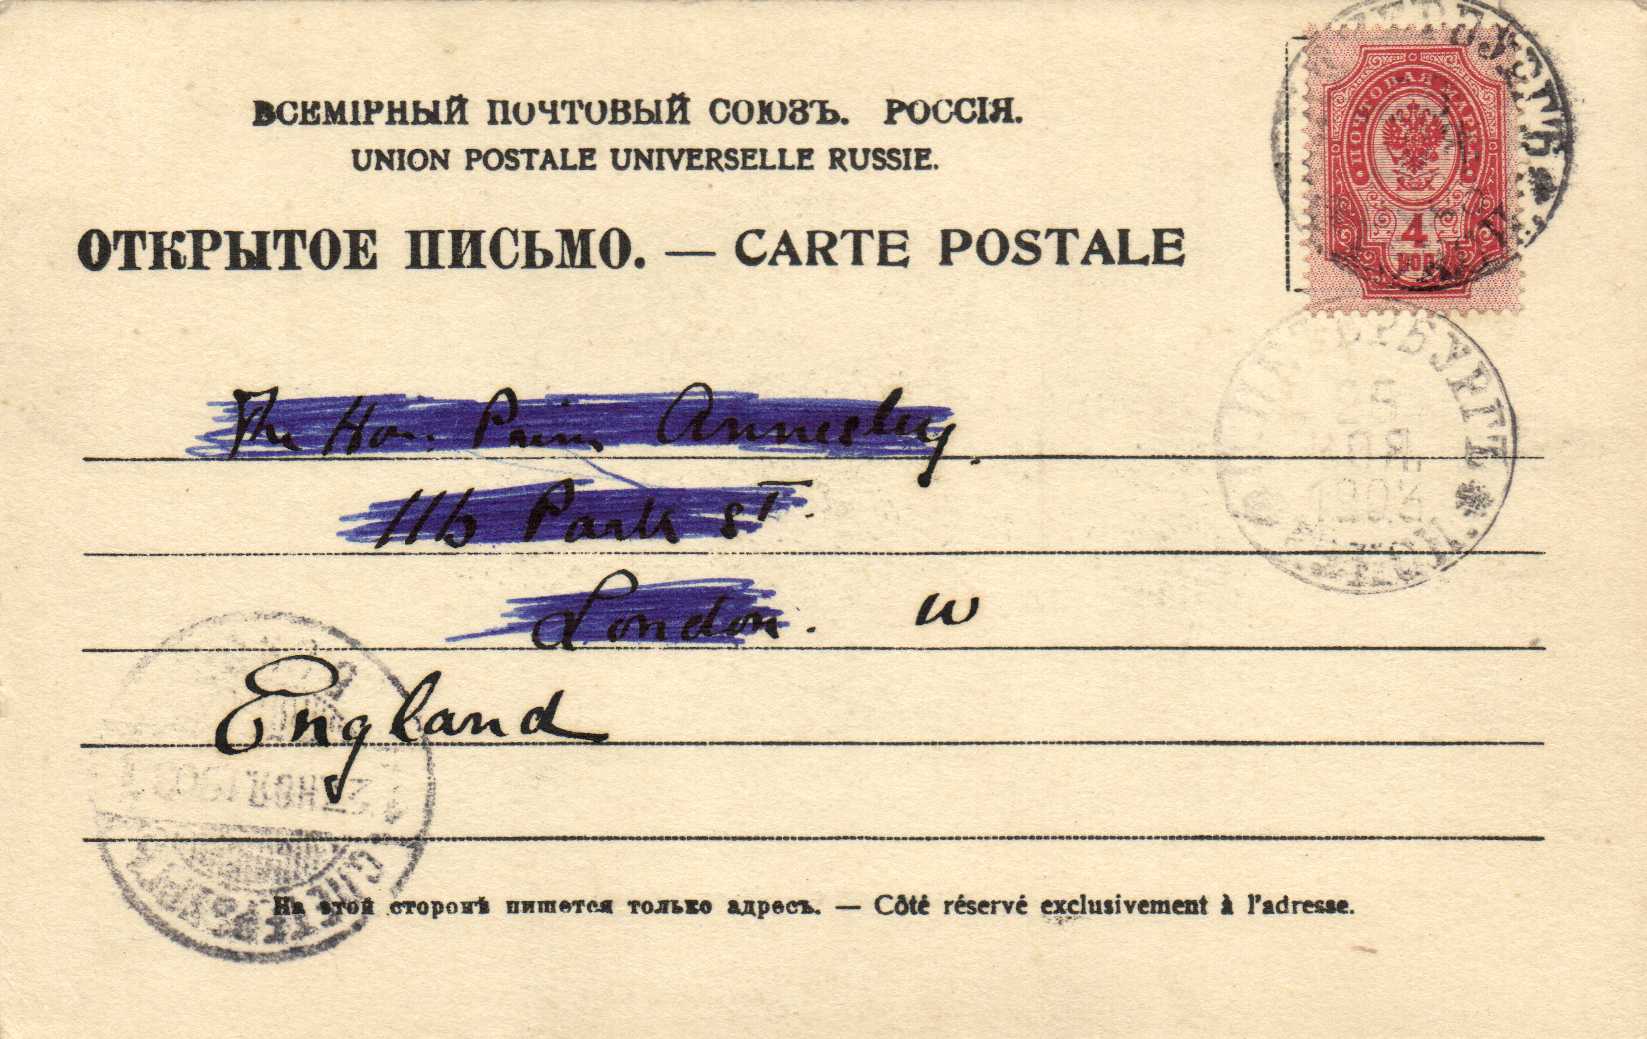 ВСЕМІРНЫЙ ПОЧТОВЫЙ СОЮЗЪ. РОССІЯ.
UNION POSTALE UNIVERSELLE RUSSIE.
ОТКРЫТОЕ ПИСЬМО. — CARTE POSTALE
ПОЧТОВАЯ МАРКА
4
КОП
The Hon. Annesley.
11b Park St.
London. W
England
С.ПЕТЕРБУРГЪ
25
НОЯ
1903
На этой сторонѣ пишется только адресъ. — Côté réservé exclusivement à l'adresse.